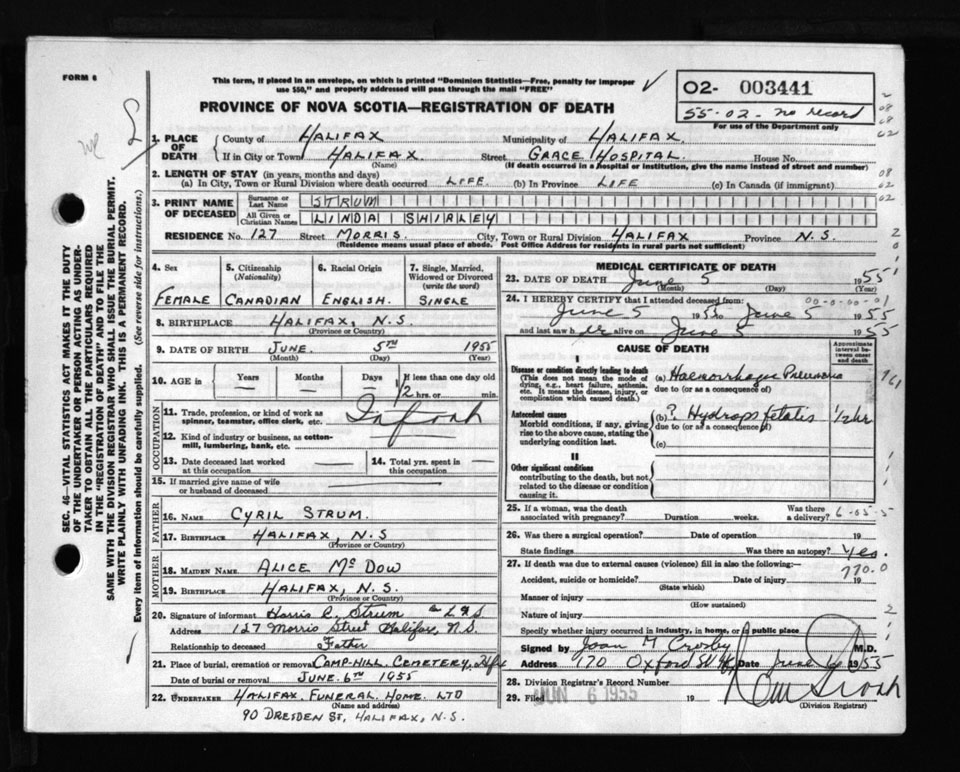 FORM 6
This form, if placed in an envelope, on which is printed "Dominion Statistics—Free, penalty for improper
use $50," and properly addressed will pass through the mail "FREE"
PROVINCE OF NOVA SCOTIA—REGISTRATION OF DEATH
02- 003441
55-02- no record
For use of the Department only
1. PLACE OF DEATH
County of HALIFAX Municipality of HALIFAX
If in City or Town HALIFAX. Street GRACE HOSPITAL. House No.
(Name) (If death occurred in a Hospital or Institution, give the name instead of street and number)
2. LENGTH OF STAY (in years, months and days)
(a) In City, Town or Rural Division where death occurred LIFE. (b) In Province LIFE (c) In Canada (if immigrant)
3. PRINT NAME OF DECEASED
Surname or Last Name STRUM
All Given or Christian Names LINDA SHIRLEY
RESIDENCE No. 127 Street MORRIS. City, Town or Rural Division HALIFAX Province N.S.
(Residence means usual place of abode. Post Office Address for residents in rural parts not sufficient)
4. Sex FEMALE
5. Citizenship (Nationality) CANADIAN
6. Racial Origin ENGLISH.
7. Single, Married, Widowed or Divorced (write the word) SINGLE
8. BIRTHPLACE HALIFAX, N.S.
(Province or Country)
9. DATE OF BIRTH JUNE. 5TH 1955
(Month) (Day) (Year)
10. AGE in Years Months Days If less than one day
1/2 hrs. or min.
OCCUPATION
11. Trade, profession, or kind of work as spinner, teamster, office clerk, etc.
12. Kind of industry or business, as cotton-mill, lumbering, bank, etc.
13. Date deceased last worked at this occupation
14. Total yrs. spent in this occupation
15. If married give name of wife or husband of deceased
FATHER
16. NAME CYRIL STRUM.
17. BIRTHPLACE HALIFAX, N.S
(Province or Country)
MOTHER
18. MAIDEN NAME ALICE McDOW
19. BIRTHPLACE HALIFAX, N.S.
(Province or Country)
20. Signature of informant Strum
Address 127 Morris Street Halifax, N.S.
Relationship to deceased Father
21. Place of burial, cremation or removal CAMP-HILL. CEMETERY, Hfx
Date of burial or removal JUNE. 6TH 1955
22. UNDERTAKER HALIFAX. FUNERAL. HOME. LTD
(Name and address)
90 DRESDEN ST, HALIFAX, N.S.
MEDICAL CERTIFICATE OF DEATH
23. DATE OF DEATH June 5 1955
(Month) (Day) (Year)
24. I HEREBY CERTIFY that I attended deceased from: 00-0-00-01
June 5 1955 to June 5 1955
and last saw her alive on June 5 1955
CAUSE OF DEATH
Approximate interval between onset and death
I
Disease or condition directly leading to death
(This does not mean the mode of dying, e.g., heart failure, asthenia, etc. It means the disease, injury, or complication which caused death.)
(a) Haemorrhagic Pneumonia
due to (or as a consequence of)
Antecedent causes
Morbid conditions, if any, giving rise to the above cause, stating the underlying condition last.
(b) ? Hydrops fetalis 1/2 hr
due to (or as a consequence of)
(c)
II
Other significant conditions
contributing to the death, but not related to the disease or condition causing it.
25. If a woman, was the death associated with pregnancy? Duration weeks. Was there a delivery?
26. Was there a surgical operation? Date of operation 19
State findings Was there an autopsy? Yes.
27. If death was due to external causes (violence) fill in also the following: 770.0
Accident, suicide or homicide? Date of injury 19
(State which)
Manner of injury
(How sustained)
Nature of injury
Specify whether injury occurred in industry, in home, or in public place
Signed by Joan M Crosby M.D.
Address 170 Oxford St Hfx Date June 6 1955
28. Division Registrar's Record Number
29. Filed JUN 6 1955 19
(Division Registrar)
SEC. 46—VITAL STATISTICS ACT MAKES IT THE DUTY
OF THE UNDERTAKER OR PERSON ACTING AS UNDER-
TAKER TO OBTAIN ALL THE PARTICULARS REQUIRED
IN THE "REGISTRATION OF DEATH" AND TO FILE THE
SAME WITH THE DIVISION REGISTRAR WHO SHALL ISSUE THE BURIAL PERMIT.
WRITE PLAINLY WITH UNFADING INK. THIS IS A PERMANENT RECORD.
Every item of information should be carefully supplied. (See reverse side for instructions.)